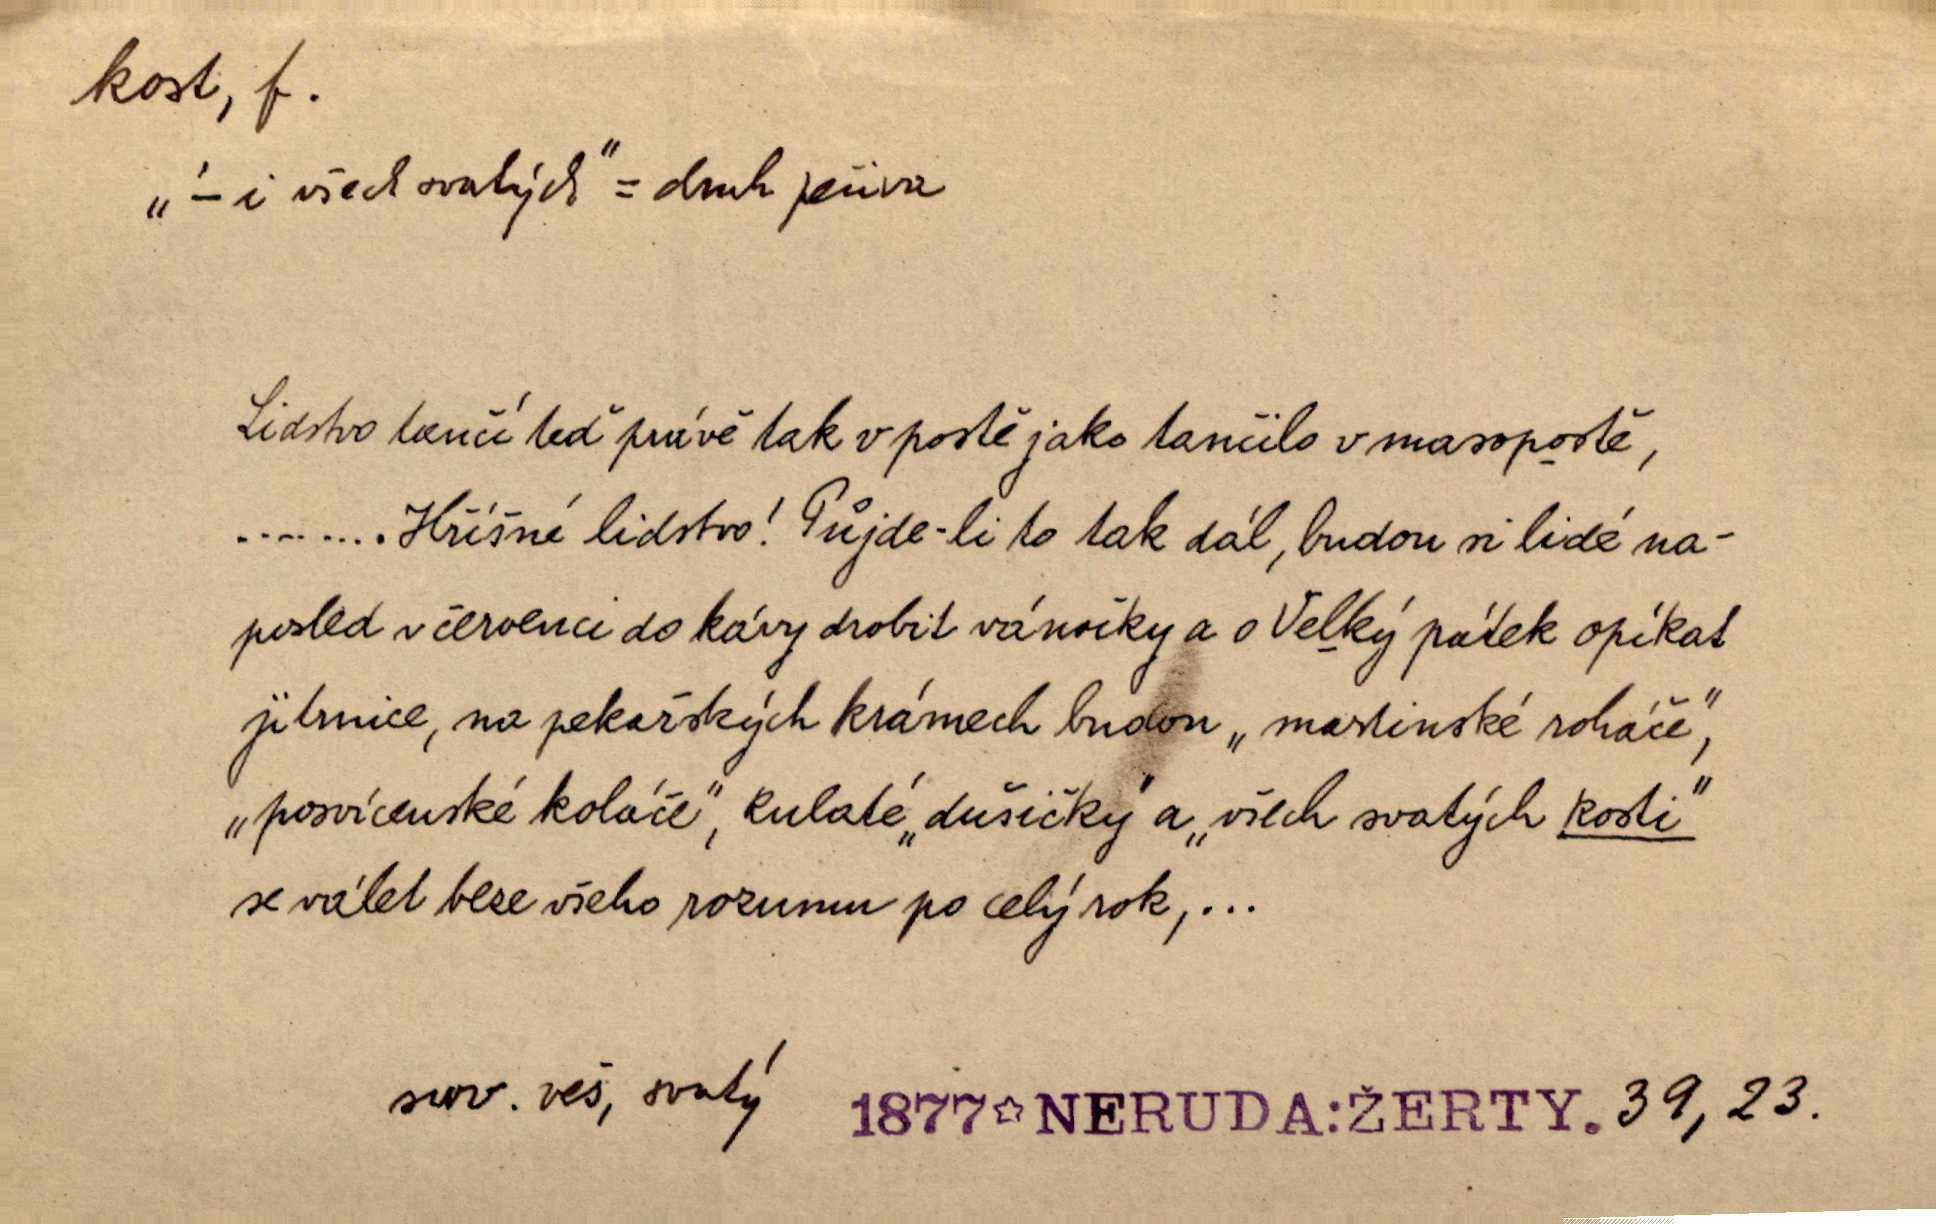 kost, f.
„ – i všech svatých" = druh pečiva
Lidstvo tančí teď právě tak v postě jako tančilo v masopostě,
........Hříšné lidstvo! Půjde-li to tak dál, budou si lidé na-
posled v červenci do kávy drobit vánočky a o Velký pátek opíkat
jitrnice, na pekařských krámech budou „martinské roháče",
„posvícenské koláče", kulaté „dušičky" a „všech svatých kosti"
se válet beze všeho rozumu po celý rok,...
srov. veš, svatý 1877☆NERUDA:ŽERTY. 39, 23.